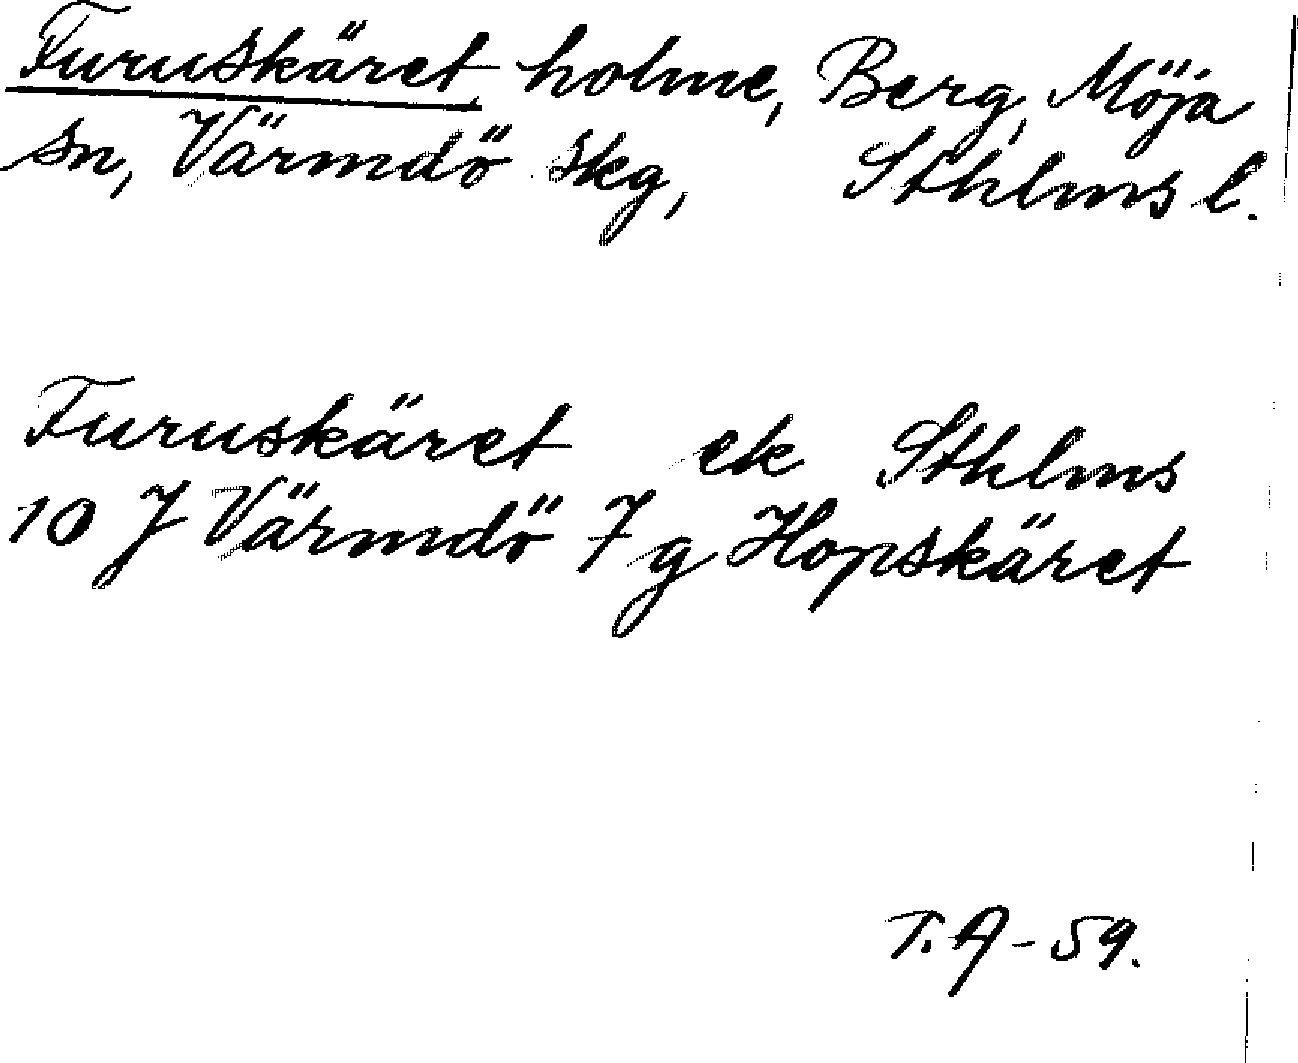 Furuskäret, holme, Berg, Möja
sn, Värmdö skg, Sthlms l.
Furuskäret ek Sthlms
10 J Värmdö 7 g Hopskäret
T. A - 59.